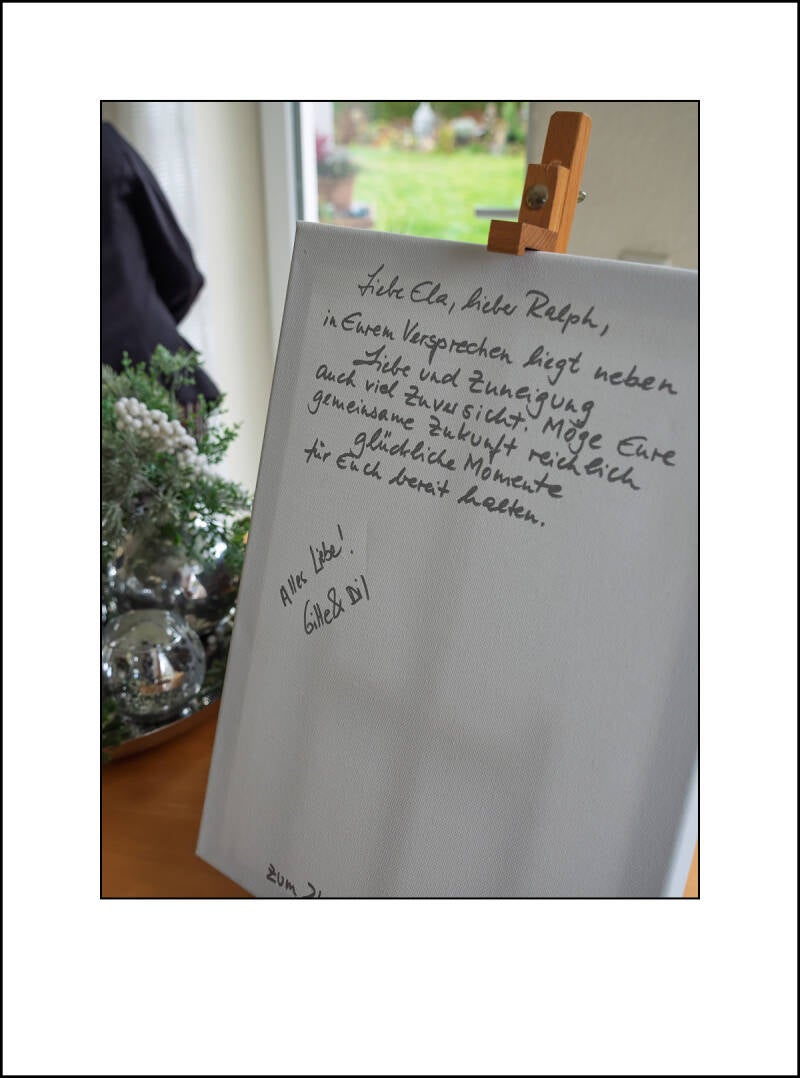 Liebe Ela, lieber Ralph,
in Eurem Versprechen liegt neben
Liebe und Zuneigung
auch viel Zuversicht. Möge Eure
gemeinsame Zukunft reichlich
glückliche Momente
für Euch bereit halten.
Alles Liebe!
Gitte & Dil
zum